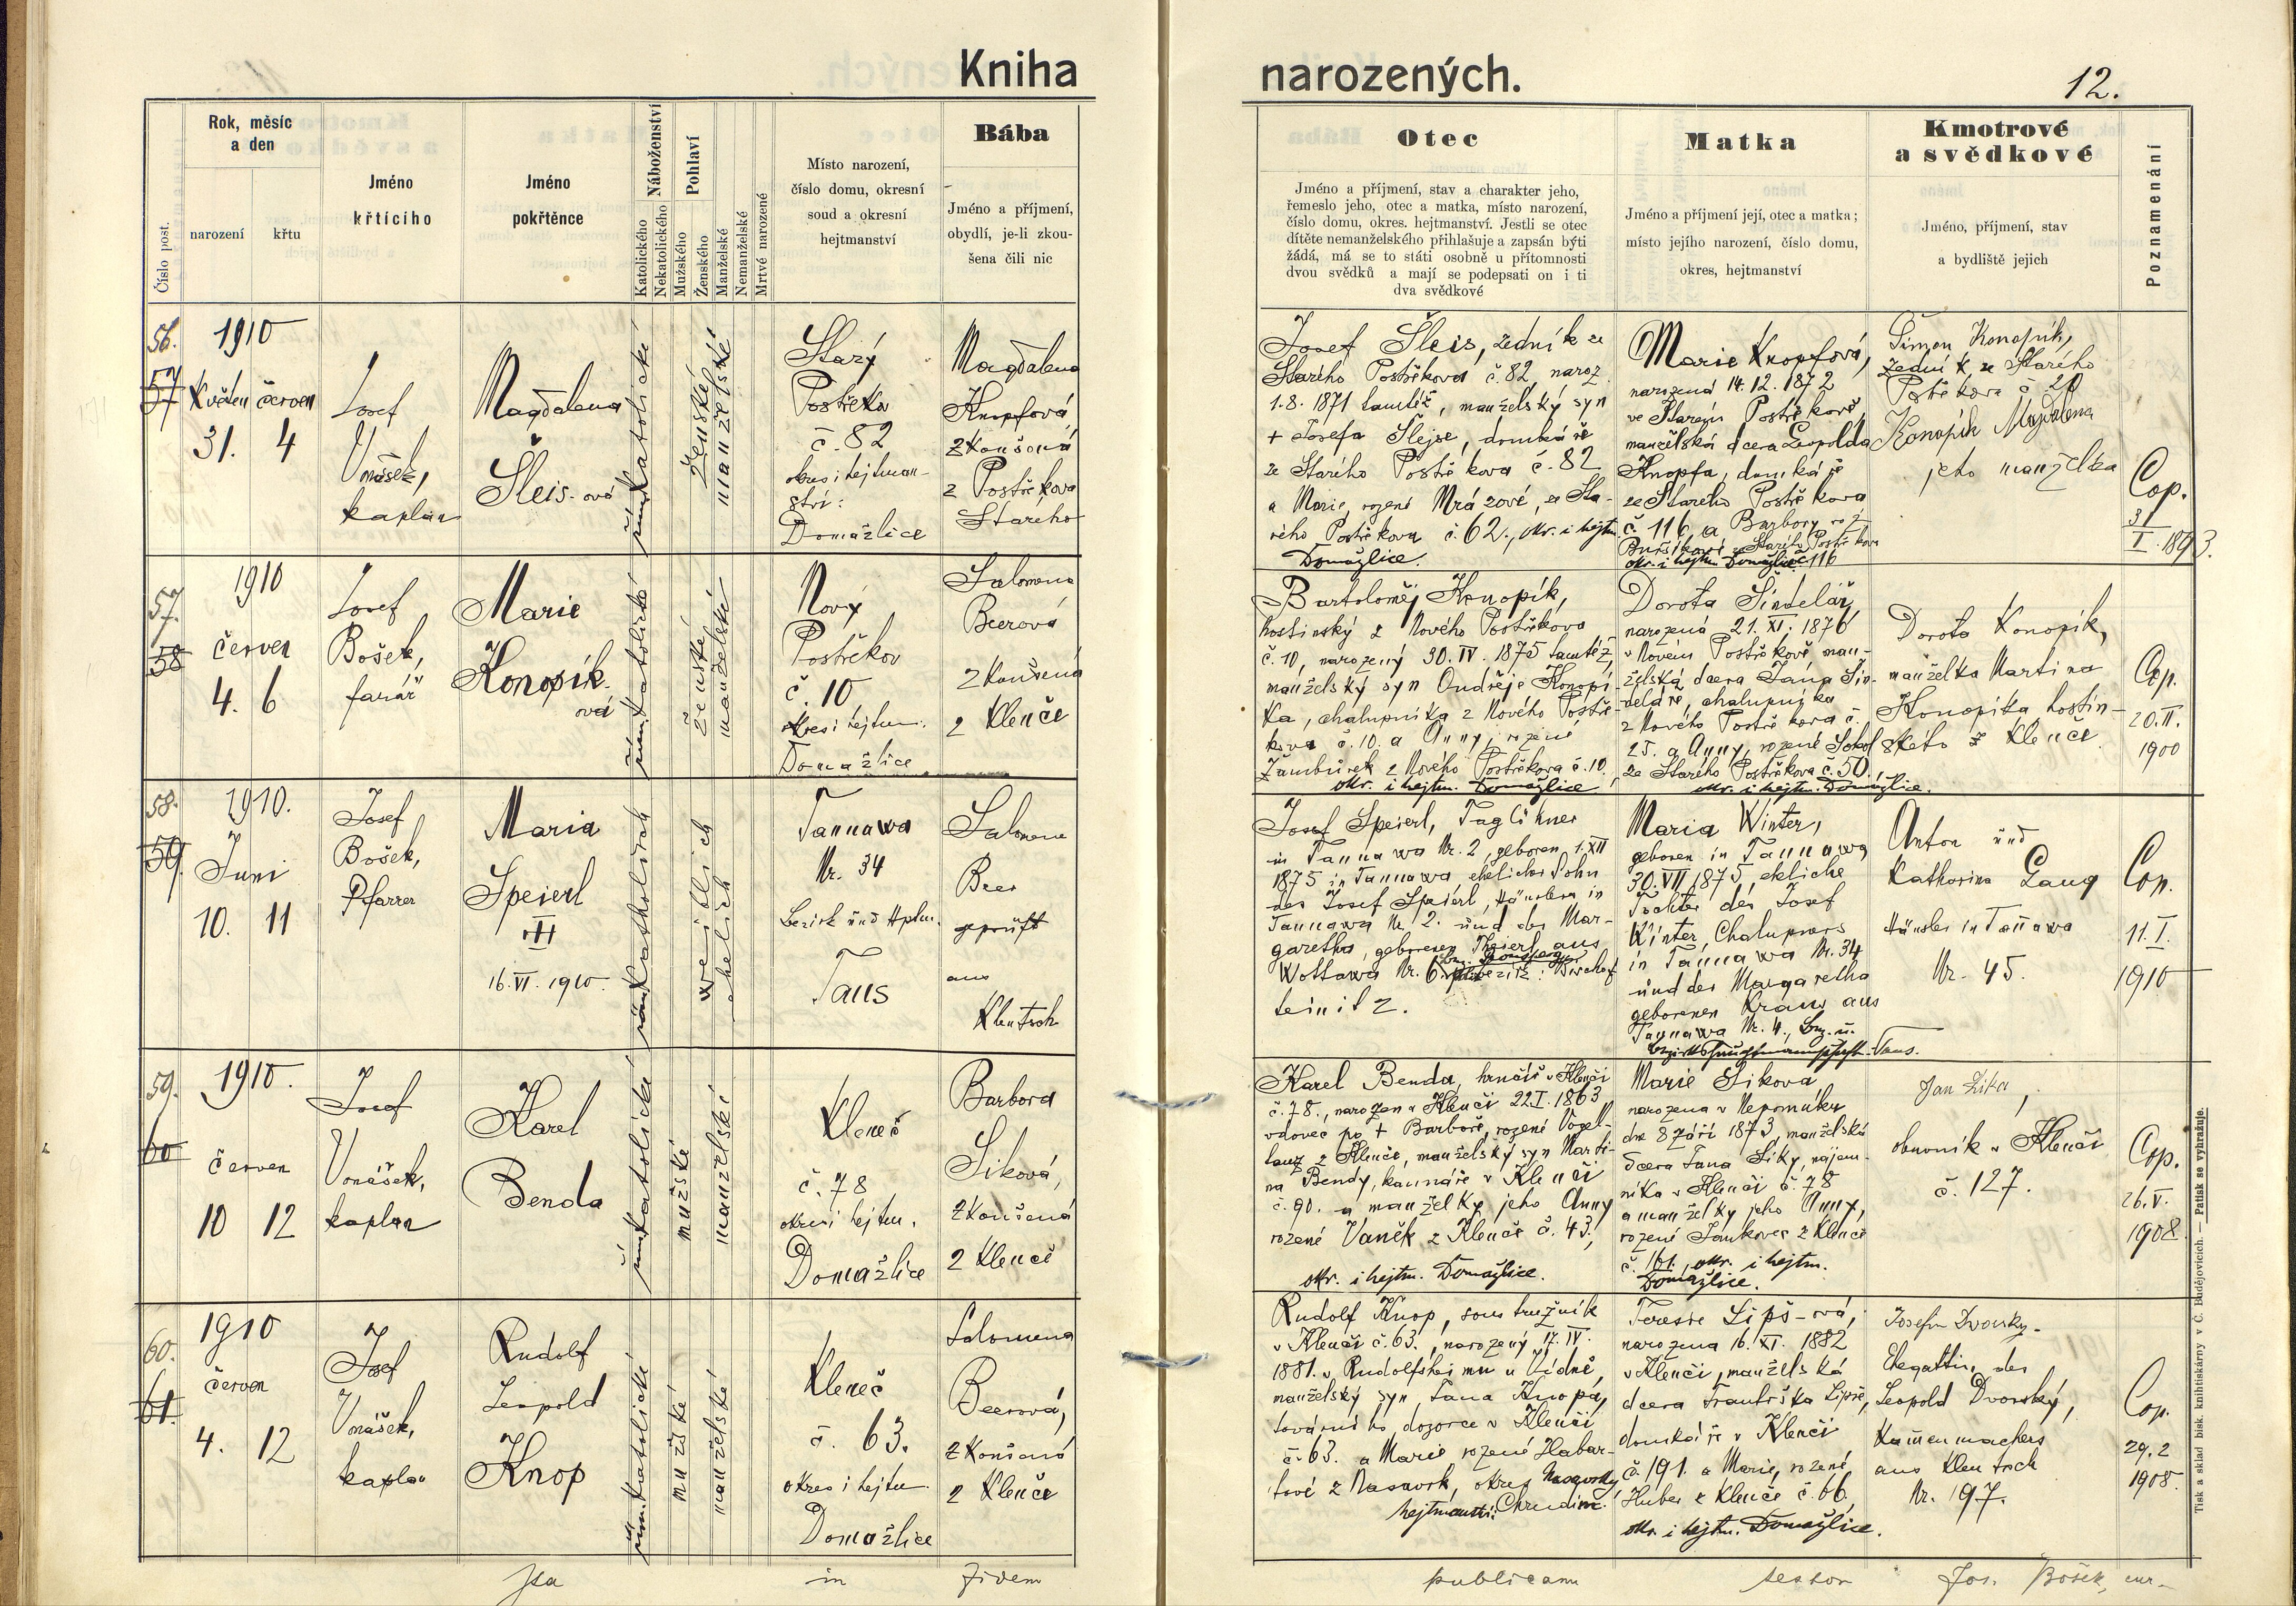 Kniha
narozených.
12.
Číslo post.
Rok, měsíc
a den
narození
křtu
Jméno
křtícího
Jméno
pokřtěnce
Náboženství
Katolického
Nekatolického
Pohlaví
Mužského
Ženského
Manželské
Nemanželské
Mrtvé narozené
Místo narození,
číslo domu, okresní
soud a okresní
hejtmanství
Bába
Jméno a příjmení,
obydlí, je-li zkou-
šena čili nic
Otec
Jméno a příjmení, stav a charakter jeho,
řemeslo jeho, otec a matka, místo narození,
číslo domu, okres. hejtmanství. Jestli se otec
dítěte nemanželského přihlašuje a zapsán býti
žádá, má se to státi osobně u přítomnosti
dvou svědků a mají se podepsati on i ti
dva svědkové
Matka
Jméno a příjmení její, otec a matka;
místo jejího narození, číslo domu,
okres, hejtmanství
Kmotrové
a svědkové
Jméno, příjmení, stav
a bydliště jejich
Poznamenání
56.
57
1910
Květen červen
31. 4
Josef
Vonášek,
kaplan
Magdalena
Šleis-ová
řím. katolické
ženské
manželské
Starý
Postřekov
č. 82
okres i hejtman-
ství:
Domažlice
Magdalena
Knopfová,
zkoušená
z Postřekova
Starého
Josef Šleis, zedník ze
Starého Postřekova č. 82, naroz.
1.8. 1871 tamtéž, manželský syn
+ Josefa Šlejse, domkáře
ze Starého Postřekova č. 82
a Marie, rozené Mrázové, ze Sta-
rého Postřekova č. 62., okr. i hejtm.
Domažlice.
Marie Knopfová,
narozená 14.12. 1872
ve Starém Postřekově,
manželská dcera Leopolda
Knopfa, domkáře
ze Starého Postřekova
č. 116 a Barbory roz.
okr. i hejtm. Domažlice
Šimon Konopík,
zedník ze Starého
Postřekova č. 20
Konopík Magdalena
jeho manželka
Cop.
31
I. 1893.
57.
58
1910
červen
4. 6
Josef
Bošek,
farář
Marie
Konopík-
ová
řím. katolické
ženské
manželské
Nový
Postřekov
č. 10
okres i hejtm.
Domažlice
Salomena
Beerová
zkoušená
z Klenče
Bartoloměj Konopík,
hostinský z Nového Postřekova
č. 10, narozený 30. IV. 1875 tamtéž,
manželský syn Ondřeje Konopí-
ka, chalupníka z Nového Postře-
kova č. 10. a Anny, rozené
Žambůrek z Nového Postřekova č. 10.
okr. i hejtm. Domažlice
Dorota Šindelář,
narozená 21. XI. 1876
v Novém Postřekově man-
želská dcera Jána Šin-
deláře, chalupníka
z Nového Postřekova č.
25. a Anny, rozené Sokol
ze Starého Postřekova č. 50.
okr. i hejtm. Domažlice.
Dorota Konopík,
manželka Martina
Konopíka hostin-
ského z Klenče
Cop.
20. II.
1900
58.
59.
1910.
Juni
10. 11
Josef
Bošek,
Pfarrer
Maria
Speierl
16. VI. 1910.
röm. katholisch
weiblich
ehelich
Tannawa
Nr. 34
Bezirk und Hptm.
Taus
Salomena
Beer
geprüft
aus
Klentsch
Josef Speierl, Taglöhner
in Tannawa Nr. 2, geboren 1. XII
1875 in Tannawa ehelicher Sohn
des Josef Speierl, Häuslers in
Tannawa Nr. 2. und der Mar-
garetha, geborenen Theierl aus
Wottawa Nr. 6. Bischof
teinitz.
Maria Winter,
geboren in Tannawa
30. VII 1875, eheliche
Tochter des Josef
Winter, Chalupners
in Tannawa Nr. 34
und der Margaretha
geborenen Kraus aus
Tannawa Nr. 4., Bez. u.
Bezirkshauptmannschaft Taus.
Anton und
Katharina Lang
Häusler in Tannawa
Nr. 45.
Cop.
11. I.
1910
59.
60
1910.
červen
10 12
Josef
Vonášek,
kaplan
Karel
Benda
řím. katolické
mužské
manželské
Kleneč
č. 78
okres i hejtm.
Domažlice
Barbora
Siková,
zkoušená
z Klenče
Karel Benda, hrnčíř v Klenčí
č. 78., narozen v Klenčí 22. I. 1863
vdovec po + Barboře, rozené Vogel-
tanz z Klenče, manželský syn Marti-
na Bendy, kamnáře v Klenčí
č. 90. a manželky jeho Anny
rozené Vaněk z Klenče č. 43.,
okr. i hejtm. Domažlice.
Marie Sikova
narozena v Nepomuku
dne 8 září 1873, manželská
dcera Jana Siky, nájem-
níka v Klenčí č. 78
a manželky jeho Anny,
rozené Jankovec z Klenče
č. 161., okr. i hejtm.
Domažlice.
Jan Sika,
obuvník v Klenčí
č. 127.
Cop.
26. V.
1908
60.
61.
1910
červen
4. 12
Josef
Vonášek,
kaplan
Rudolf
Leopold
Knop
řím. katolické
mužské
manželské
Kleneč
č. 63.
okres i hejtm.
Domažlice
Salomena
Beerová,
zkoušená
z Klenče
Rudolf Knop, soustružník
v Klenčí č. 63., narozený 17. IV.
1881. v Rudolfsheimu u Vídně,
manželský syn Jana Knopa,
továrního dozorce v Klenčí
č. 63. a Marie rozené Habar-
tové z Nasavrk, okres Nasavrky
hejtmanství: Chrudim.
Terezie Lipš-ová,
narozena 16. XI. 1882
v Klenčí, manželská
dcera Františka Lipše,
domkáře v Klenčí
č. 191. a Marie, rozené
Huber z Klenče č. 66,
okr. i hejtm. Domažlice.
Josefa Dvorsky.
Ehegattin des
Leopold Dvorský,
Kammachers
aus Klentsch
Nr. 197.
Cop.
29. 2
1908.
Ita in fidem publicam testor Jos. Bošek, cur.
Tisk a sklad bisk. knihtiskárny v Č. Budějovicích. — Patisk se vyhražuje.